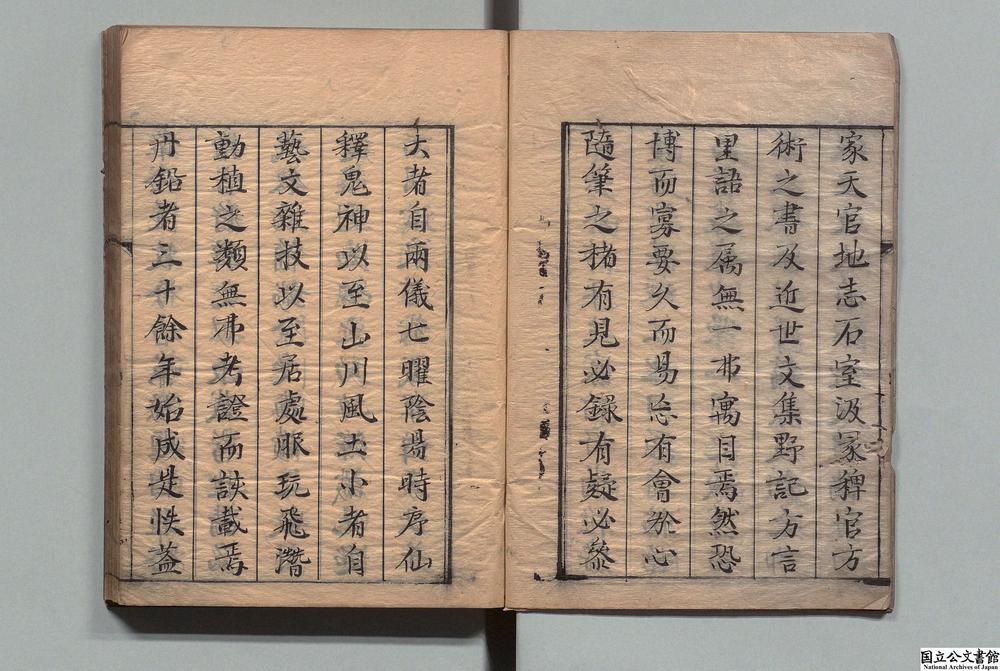 家天官地志石室汲冢稗官方
術之書及近世文集野記方言
里語之属無一弗寓目焉然恐
博而寡要久而易忘有會於心
隨筆之楮有見必録有疑必叅
大者自兩儀七曜陰陽時序仙
釋鬼神以至山川風土小者自
藝文雜技以至居處服玩飛潛
動植之類無弗考證而詼載焉
丹鉛者三十餘年始成是帙蓋
国立公文書館
National Archives of Japan